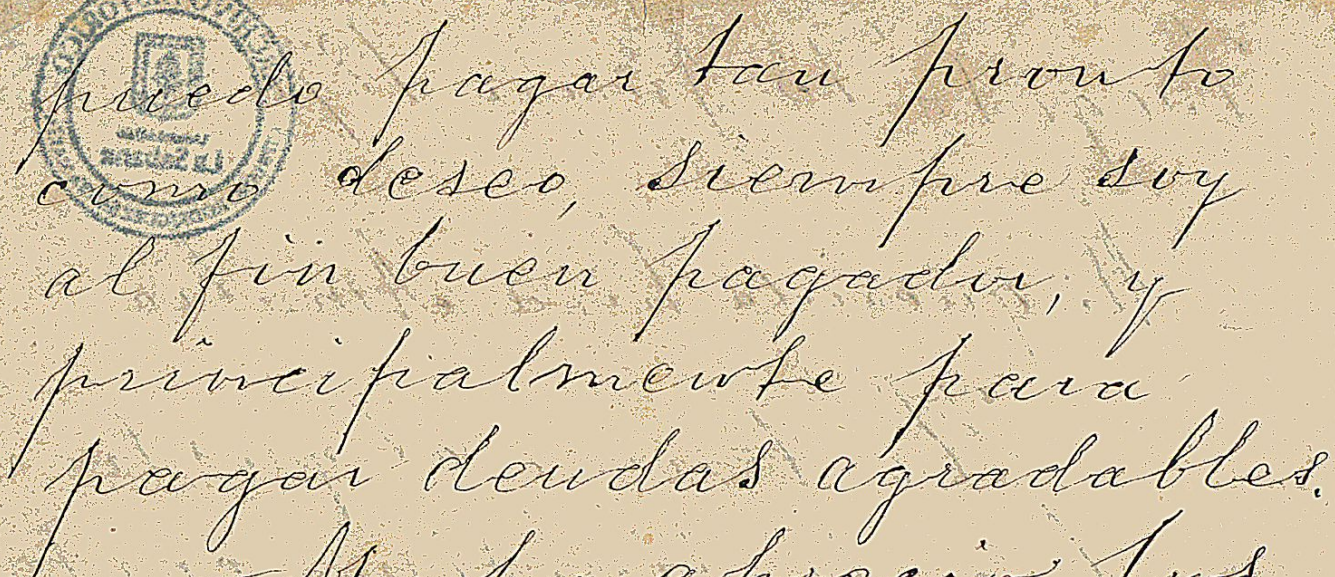 puedo pagar tan pronto
como deseo, siempre soy
al fin buen pagador, y
principalmente para
pagar deudas agradables.